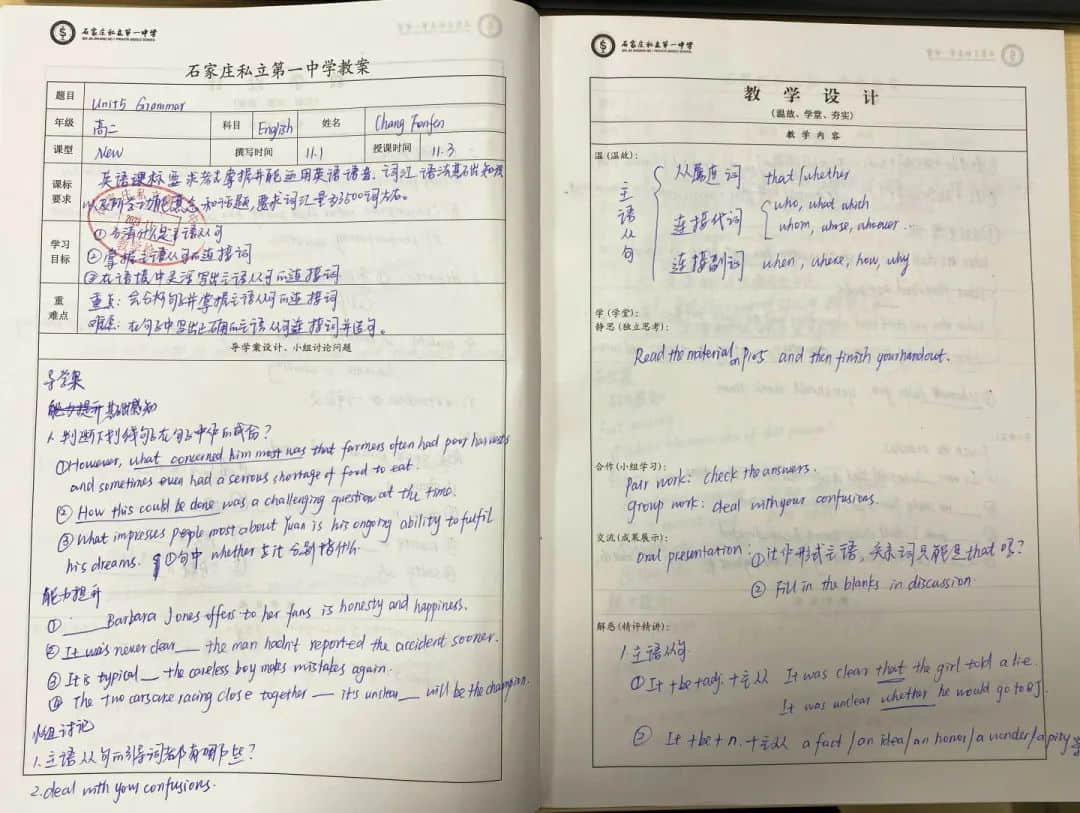 石家庄私立第一中学
石家庄私立第一中学教案
题目 Unit5 Grammar
年级 高二 科目 English 姓名 Chang
课型 New 撰写时间 11.1 授课时间 11.3
课标要求 英语课标要求考生掌握并能运用英语语音、词汇、语法基础知识
以及所学功能意念和话题,要求词汇量为3500词左右。
学习目标 ① 什么是主语从句
② 掌握主语从句的连接词
③ 在语境中灵活写出主语从句的连接词
重难点 重点:会分析句子并掌握主语从句的连接词
难点:在句子中写出正确的主语从句连接词并造句。
导学案设计、小组讨论问题
导学案
基础感知
1. 判断下划线句子在句子中作的成份?
①However, what concerned him most was that farmers often had poor harvests
and sometimes even had a serious shortage of food to eat.
② How this could be done was a challenging question at the time.
③ What impresses people most about Yuan is his ongoing ability to fulfil
his dreams. ①句中 whether 与 it 分别指什么
能力提升
① ___ Barbara Jones offers to her fans is honesty and happiness.
② It was never clear ___ the man hadn't reported the accident sooner.
③ It is typical ___ the careless boy makes mistakes again.
④ The two cars are racing close together ___ it's unclear ___ will be the champion.
小组讨论
1. 主语从句的引导词都有哪些?
2. deal with your confusions.
石家庄私立第一中学
教 学 设 计
(温故、学堂、夯实)
教 学 内 容
温(温故):
主语从句
从属连词 that/whether
连接代词 who, what which
whom, whose, whoever.
连接副词 when, where, how, why
学(学堂):
静思(独立思考):
Read the material on P105 and then finish your handout.
合作(小组学习):
Pair work: check the answers.
Group work: deal with your confusions.
交流(成果展示):
Oral presentation: ① it作形式主语,关系词只能是that吗?
② Fill in the blanks in discussion
解惑(精评精讲):
1. 主语从句
① It +be+adj. +主从 It was clear that the girl told a lie.
It was unclear whether he would go to BJ.
② It +be+n. +主从 a fact / an idea / an honor / a wonder / a pity 等